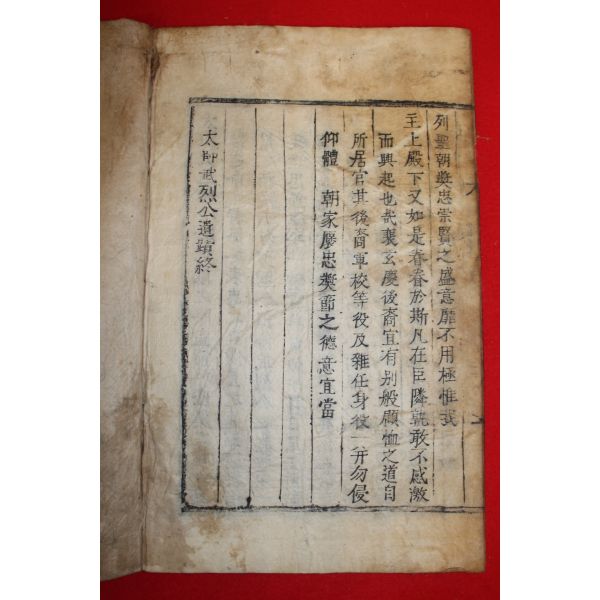 列聖朝奬忠崇賢之盛意靡不用極惟我
主上殿下又如是眷眷於斯凡在臣隣孰敢不感激
而興起也哉裵玄慶後裔宜有別般顧恤之道自
所居官其後裔軍校等役及雜任身役一幷勿侵
仰體 朝家褒忠奬節之德意宜當
太師武烈公遺蹟終